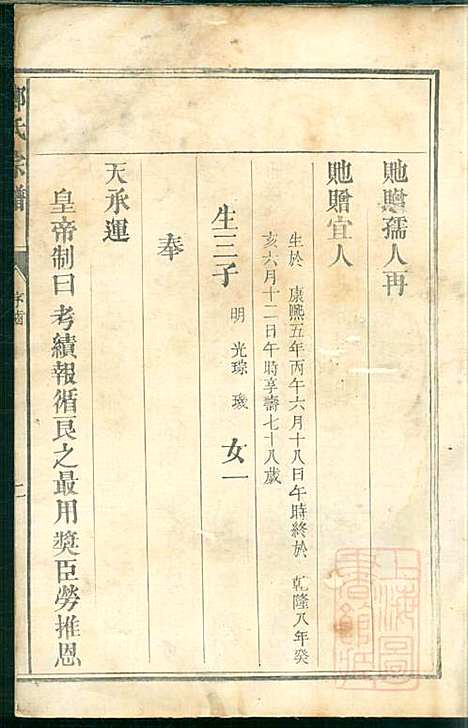 貤贈孺人再
貤贈宜人
生於 康熙五年丙午六月十八日午時終於 乾隆八年癸
亥六月十二日午時享壽七十八歲
生三子 明 光琮 璣 女一
奉
天承運
皇帝制曰考績報循良之最用獎臣勞推恩
氏宗譜
上海圖書館藏